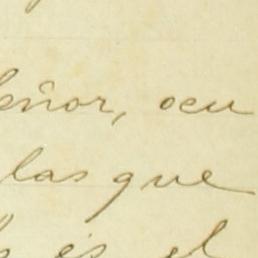 eñor, ocu
las que
es el